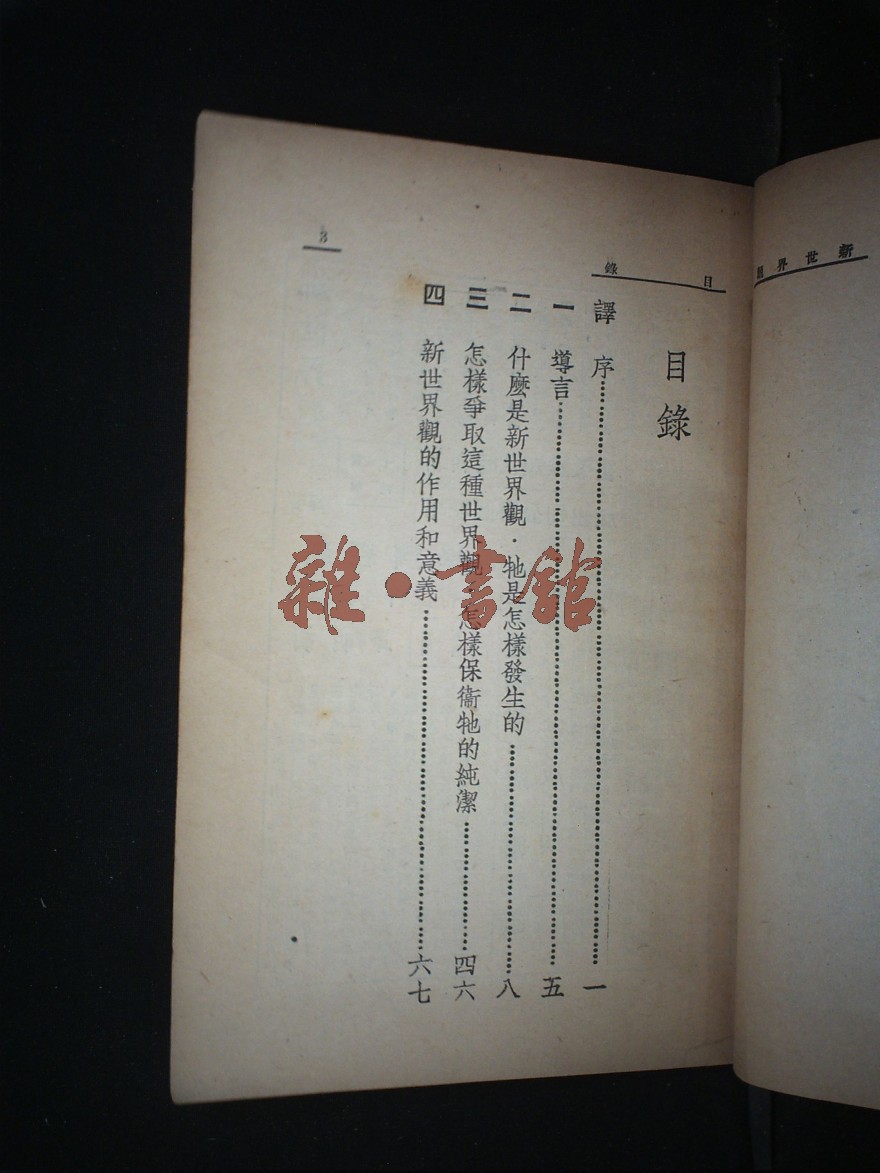 新世界觀
目錄
目錄
譯序一
一 導言五
二 什麼是新世界觀·牠是怎樣發生的八
三 怎樣爭取這種世界觀·怎樣保衞牠的純潔四六
四 新世界觀的作用和意義六七
雜·書館